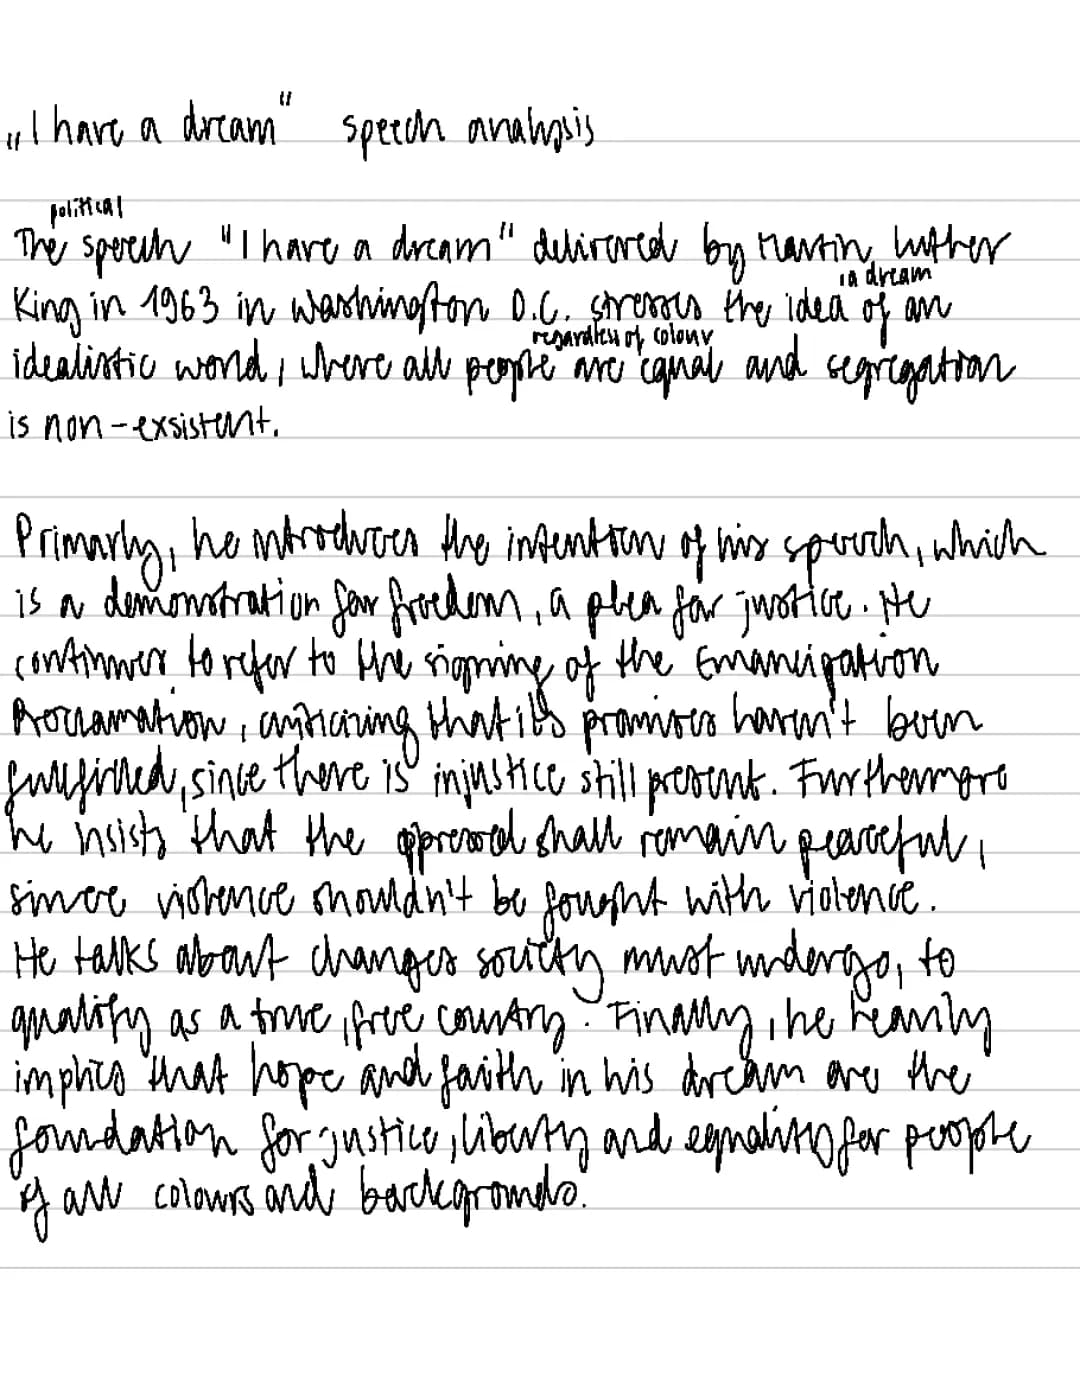 „I have a dream" speech analysis
political
The speech "I have a dream" delivered by Martin Luther
is a dream
King in 1963 in Washington D.C. stresses the idea of an
regardless of colour
idealistic world, where all people are equal and segregation
is non-exsistent.
Primarly, he introduces the intention of his speech, which
is a demonstration for freedom, a plea for justice. He
continues to refer to the signing of the Emancipation
Proclamation, criticizing that its promises haven't been
fullfilled, since there is injustice still present. Furthermore
he insists that the oppressed shall remain peaceful,
since violence shouldn't be fought with violence.
He talks about changes society must undergo, to
qualify as a true, free country. Finally, he heavily
implies that hope and faith in his dream are the
foundation for justice, liberty and equality for people
of all colours and backgrounds.